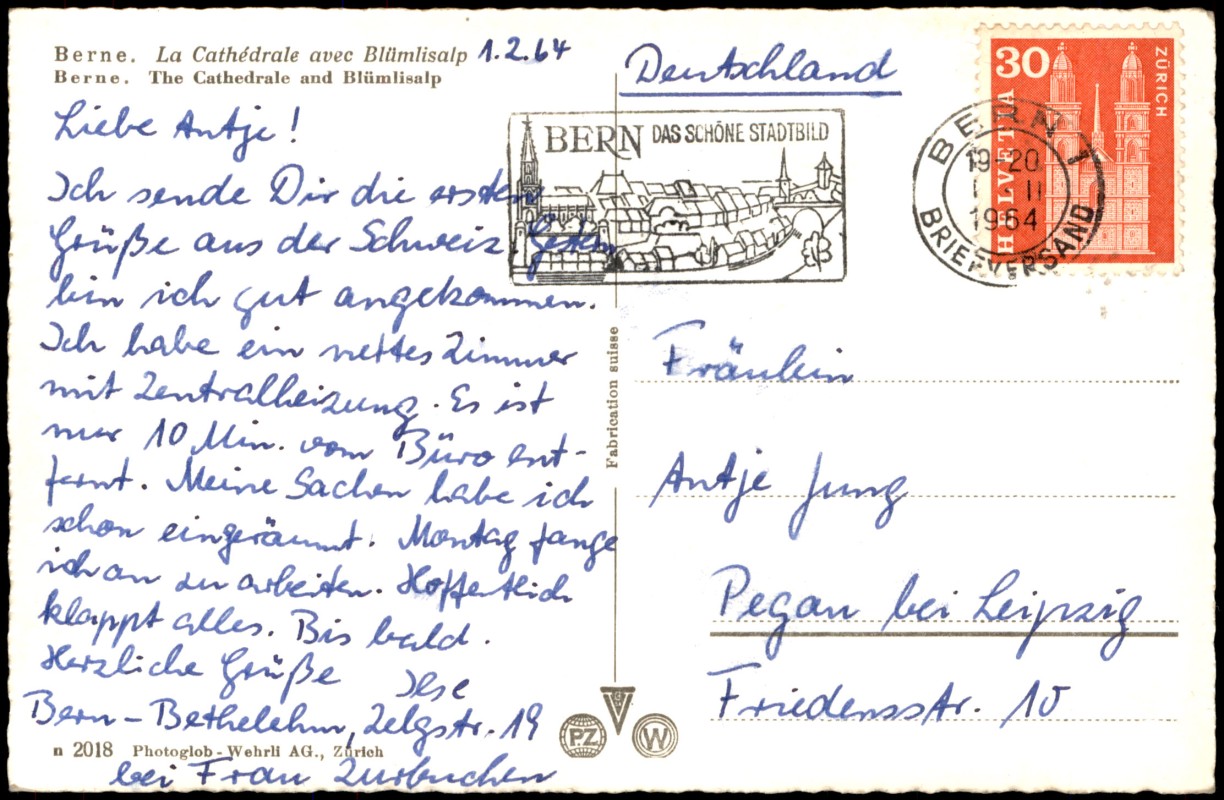 Berne. La Cathédrale avec Blümlisalp
Berne. The Cathedrale and Blümlisalp
1.2.64
Liebe Antje!
Ich sende Dir die ersten
Grüße aus der Schweiz. Gestern
bin ich gut angekommen.
Ich habe ein nettes Zimmer
mit Zentralheizung. Es ist
nur 10 Min. vom Büro ent-
fernt. Meine Sachen habe ich
schon eingeräumt. Montag fange
ich an zu arbeiten. Hoffentlich
klappt alles. Bis bald.
Herzliche Grüße Ilse
Bern-Bethelehm, Zelgstr. 19
bei Frau Zurbuchen
n 2018 Photoglob-Wehrli AG., Zürich
Fabrication suisse
PZ
V
W
Deutschland
BERN DAS SCHÖNE STADTBILD
BERN 1
19-20
II
1964
BRIEFVERSAND
30
HELVETIA
ZÜRICH
Fräulein
Antje Jung
Pegau bei Leipzig
Friedensstr. 10